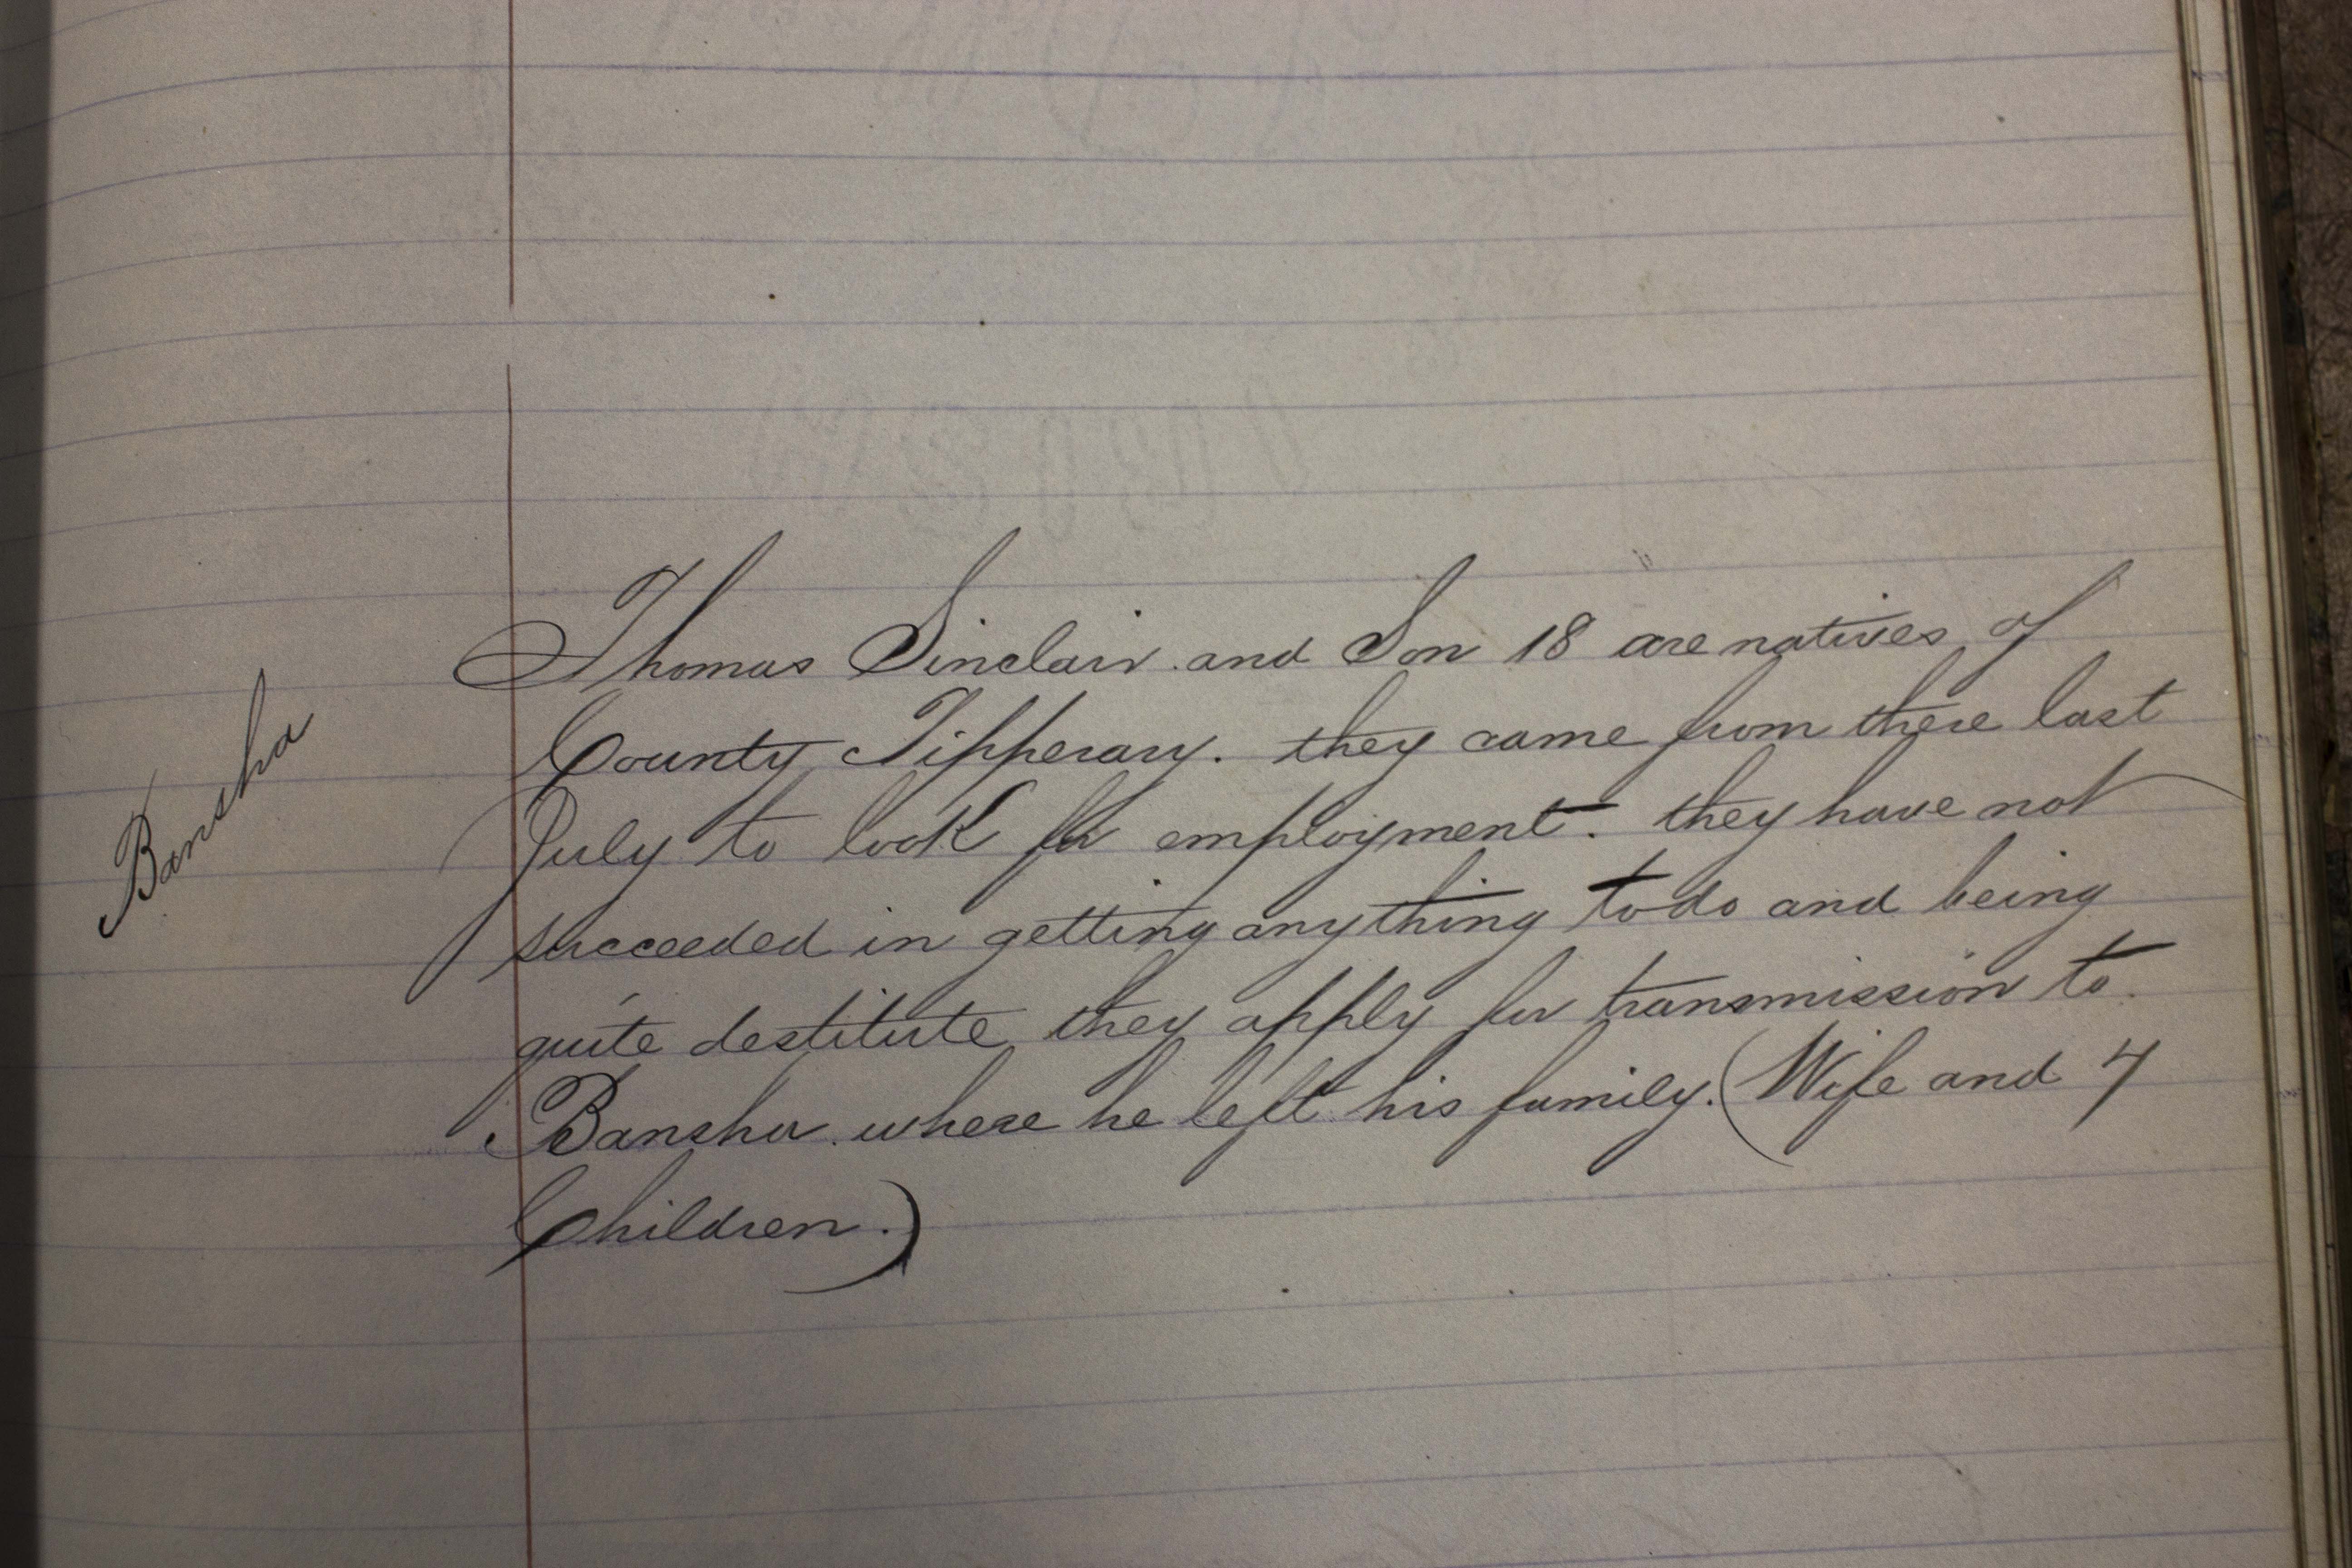 Bansha
Thomas Sinclair and Son 18 are natives of
County Tipperary. they came from there last
July to look for employment. they have not
succeeded in getting anything to do and being
quite destitute they apply for transmission to
Bansha where he left his family. (Wife and 4
Children.)